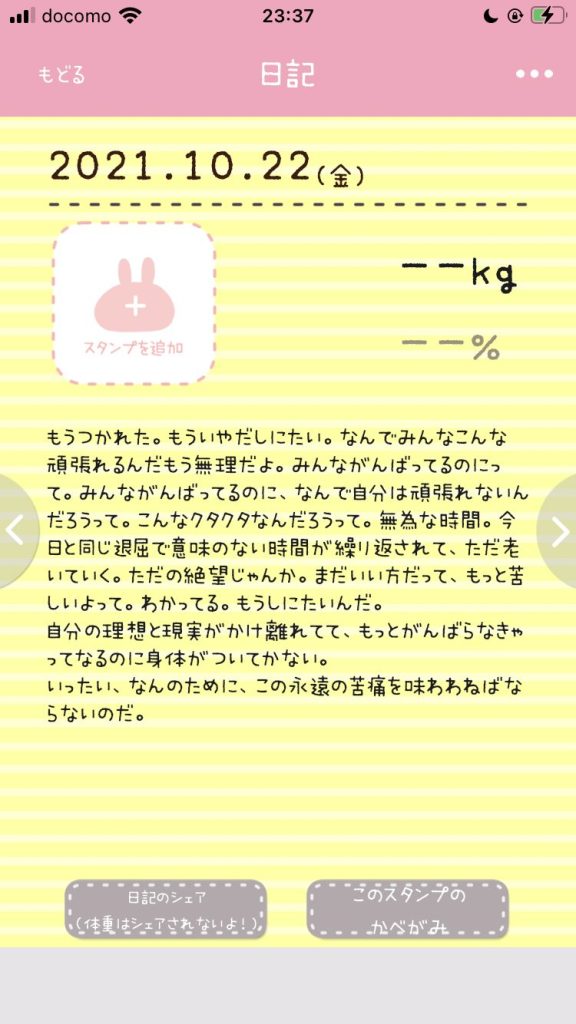 docomo 23:37
もどる 日記
2021.10.22(金)
スタンプを追加
--kg
--%
もうつかれた。もういやだしにたい。なんでみんなこんな
頑張れるんだもう無理だよ。みんながんばってるのにっ
て。みんながんばってるのに、なんで自分は頑張れないん
だろうって。こんなクタクタなんだろうって。無為な時間。今
日と同じ退屈で意味のない時間が繰り返されて、ただ老
いていく。ただの絶望じゃんか。まだいい方だって、もっと苦
しいよって。わかってる。もうしにたいんだ。
自分の理想と現実がかけ離れてて、もっとがんばらなきゃ
ってなるのに身体がついてかない。
いったい、なんのために、この永遠の苦痛を味わわねばな
らないのだ。
日記のシェア
(体重はシェアされないよ!)
このスタンプの
かべがみ